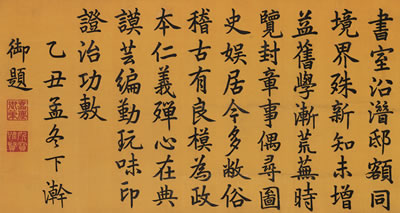 書室沿潛邸額同
境界殊新知未增
益舊學漸荒蕪時
覽封章事偶尋圖
史娛居今多敝俗
稽古有良模為政
本仁義殫心在典
謨芸編勤玩味印
證治功敷
乙丑孟冬下澣
御題